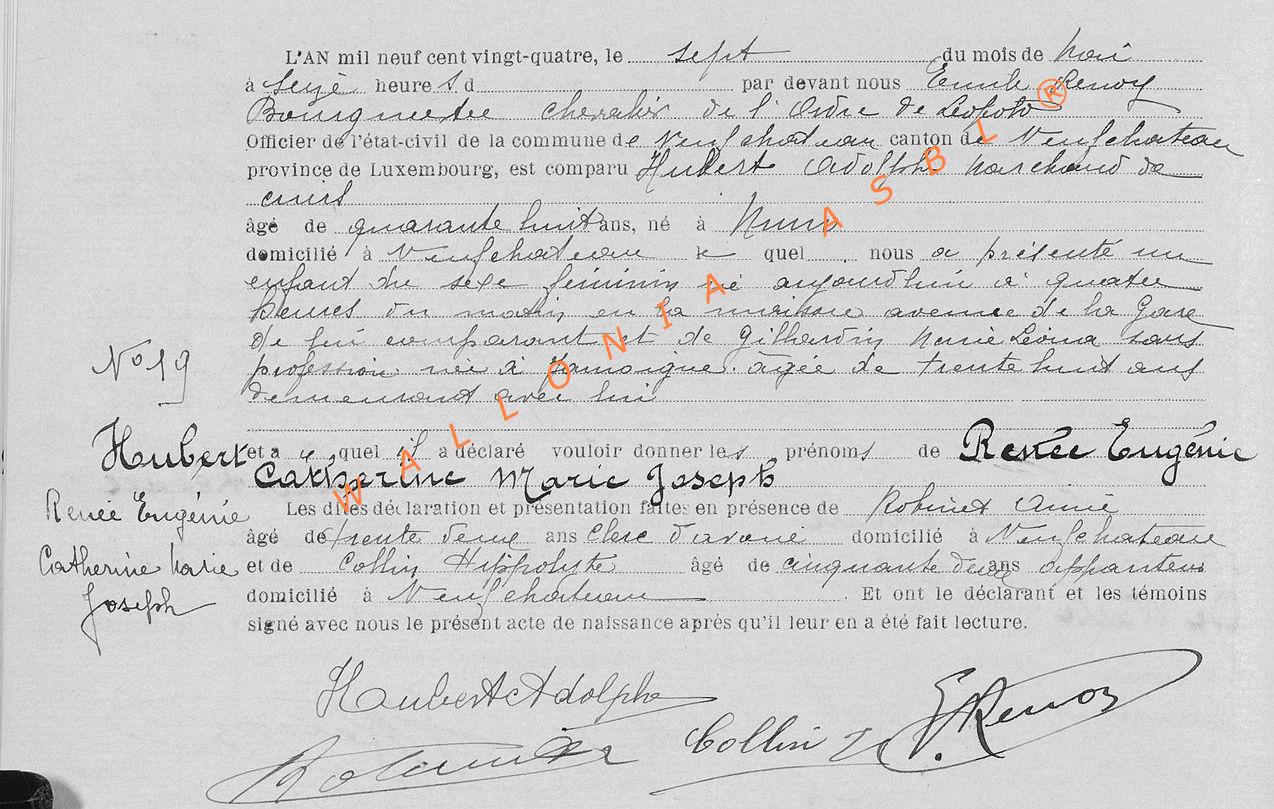 L'AN mil neuf cent vingt-quatre, le sept du mois de Mai
à seize heure s d par devant nous Emile Renoy
Bourgmestre Chevalier de l'Ordre de Léopold
Officier de l'état-civil de la commune de Neufchâteau canton de Neufchâteau
province de Luxembourg, est comparu Hubert Adolphe Marchand de
cuirs
âgé de quarante huit ans, né à Muno
domicilié à Neufchâteau le quel, nous a présenté un
enfant du sexe féminin né aujourd'hui à quatre
heures du matin en sa maison avenue de la Gare
de lui comparant et de Gillardin Marie Léonia sans
profession née à Jamoigne. âgée de trente huit ans
demeurant avec lui
No 19
Hubert
et a u quel il a déclaré vouloir donner les prénoms de Renée Eugénie
Catherine Marie Joseph
Renée Eugénie
Catherine Marie
Joseph
Les dites déclaration et présentation faites en présence de Robinet Aimé
âgé de trente deux ans Clerc d'avoué domicilié à Neufchâteau
et de Collin Hippolyte âgé de cinquante deux ans appariteur
domicilié à Neufchâteau. Et ont le déclarant et les témoins
signé avec nous le présent acte de naissance après qu'il leur en a été fait lecture.
Hubert Adolphe
Collin
E. Renoy
WALLONIA ASBL ®